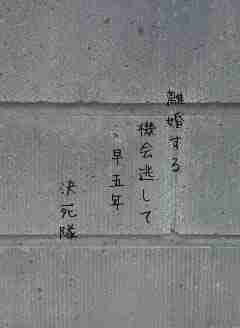 離婚する
機会逃して
、早五年
決死隊